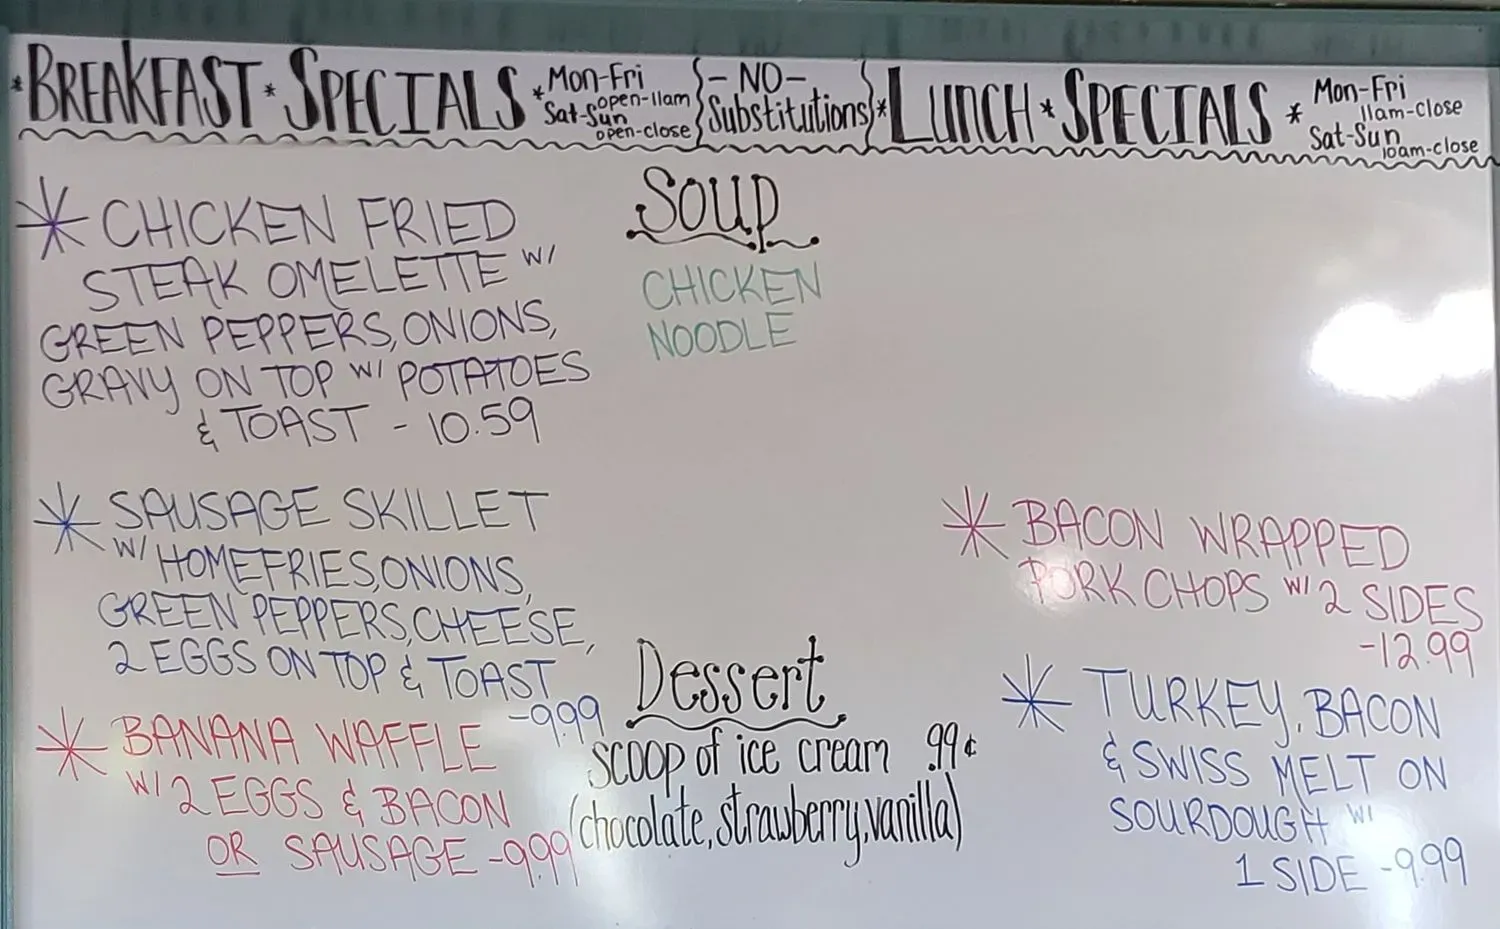 *BREAKFAST*SPECIALS *Mon-Fri open-11am
Sat-Sun open-close
-NO-
Substitutions
*LUNCH*SPECIALS *Mon-Fri
11am-close
Sat-Sun
10am-close
* CHICKEN FRIED
STEAK OMELETTE W/
GREEN PEPPERS, ONIONS,
GRAVY ON TOP W/ POTATOES
& TOAST - 10.59
* SAUSAGE SKILLET
W/ HOMEFRIES, ONIONS,
GREEN PEPPERS, CHEESE,
2 EGGS ON TOP & TOAST
-9.99
* BANANA WAFFLE
W/ 2 EGGS & BACON
OR SAUSAGE -9.99
Soup
CHICKEN
NOODLE
Dessert
scoop of ice cream .99¢
(chocolate, strawberry, vanilla)
* BACON WRAPPED
PORK CHOPS W/ 2 SIDES
-12.99
* TURKEY, BACON
& SWISS MELT ON
SOURDOUGH W/
1 SIDE -9.99